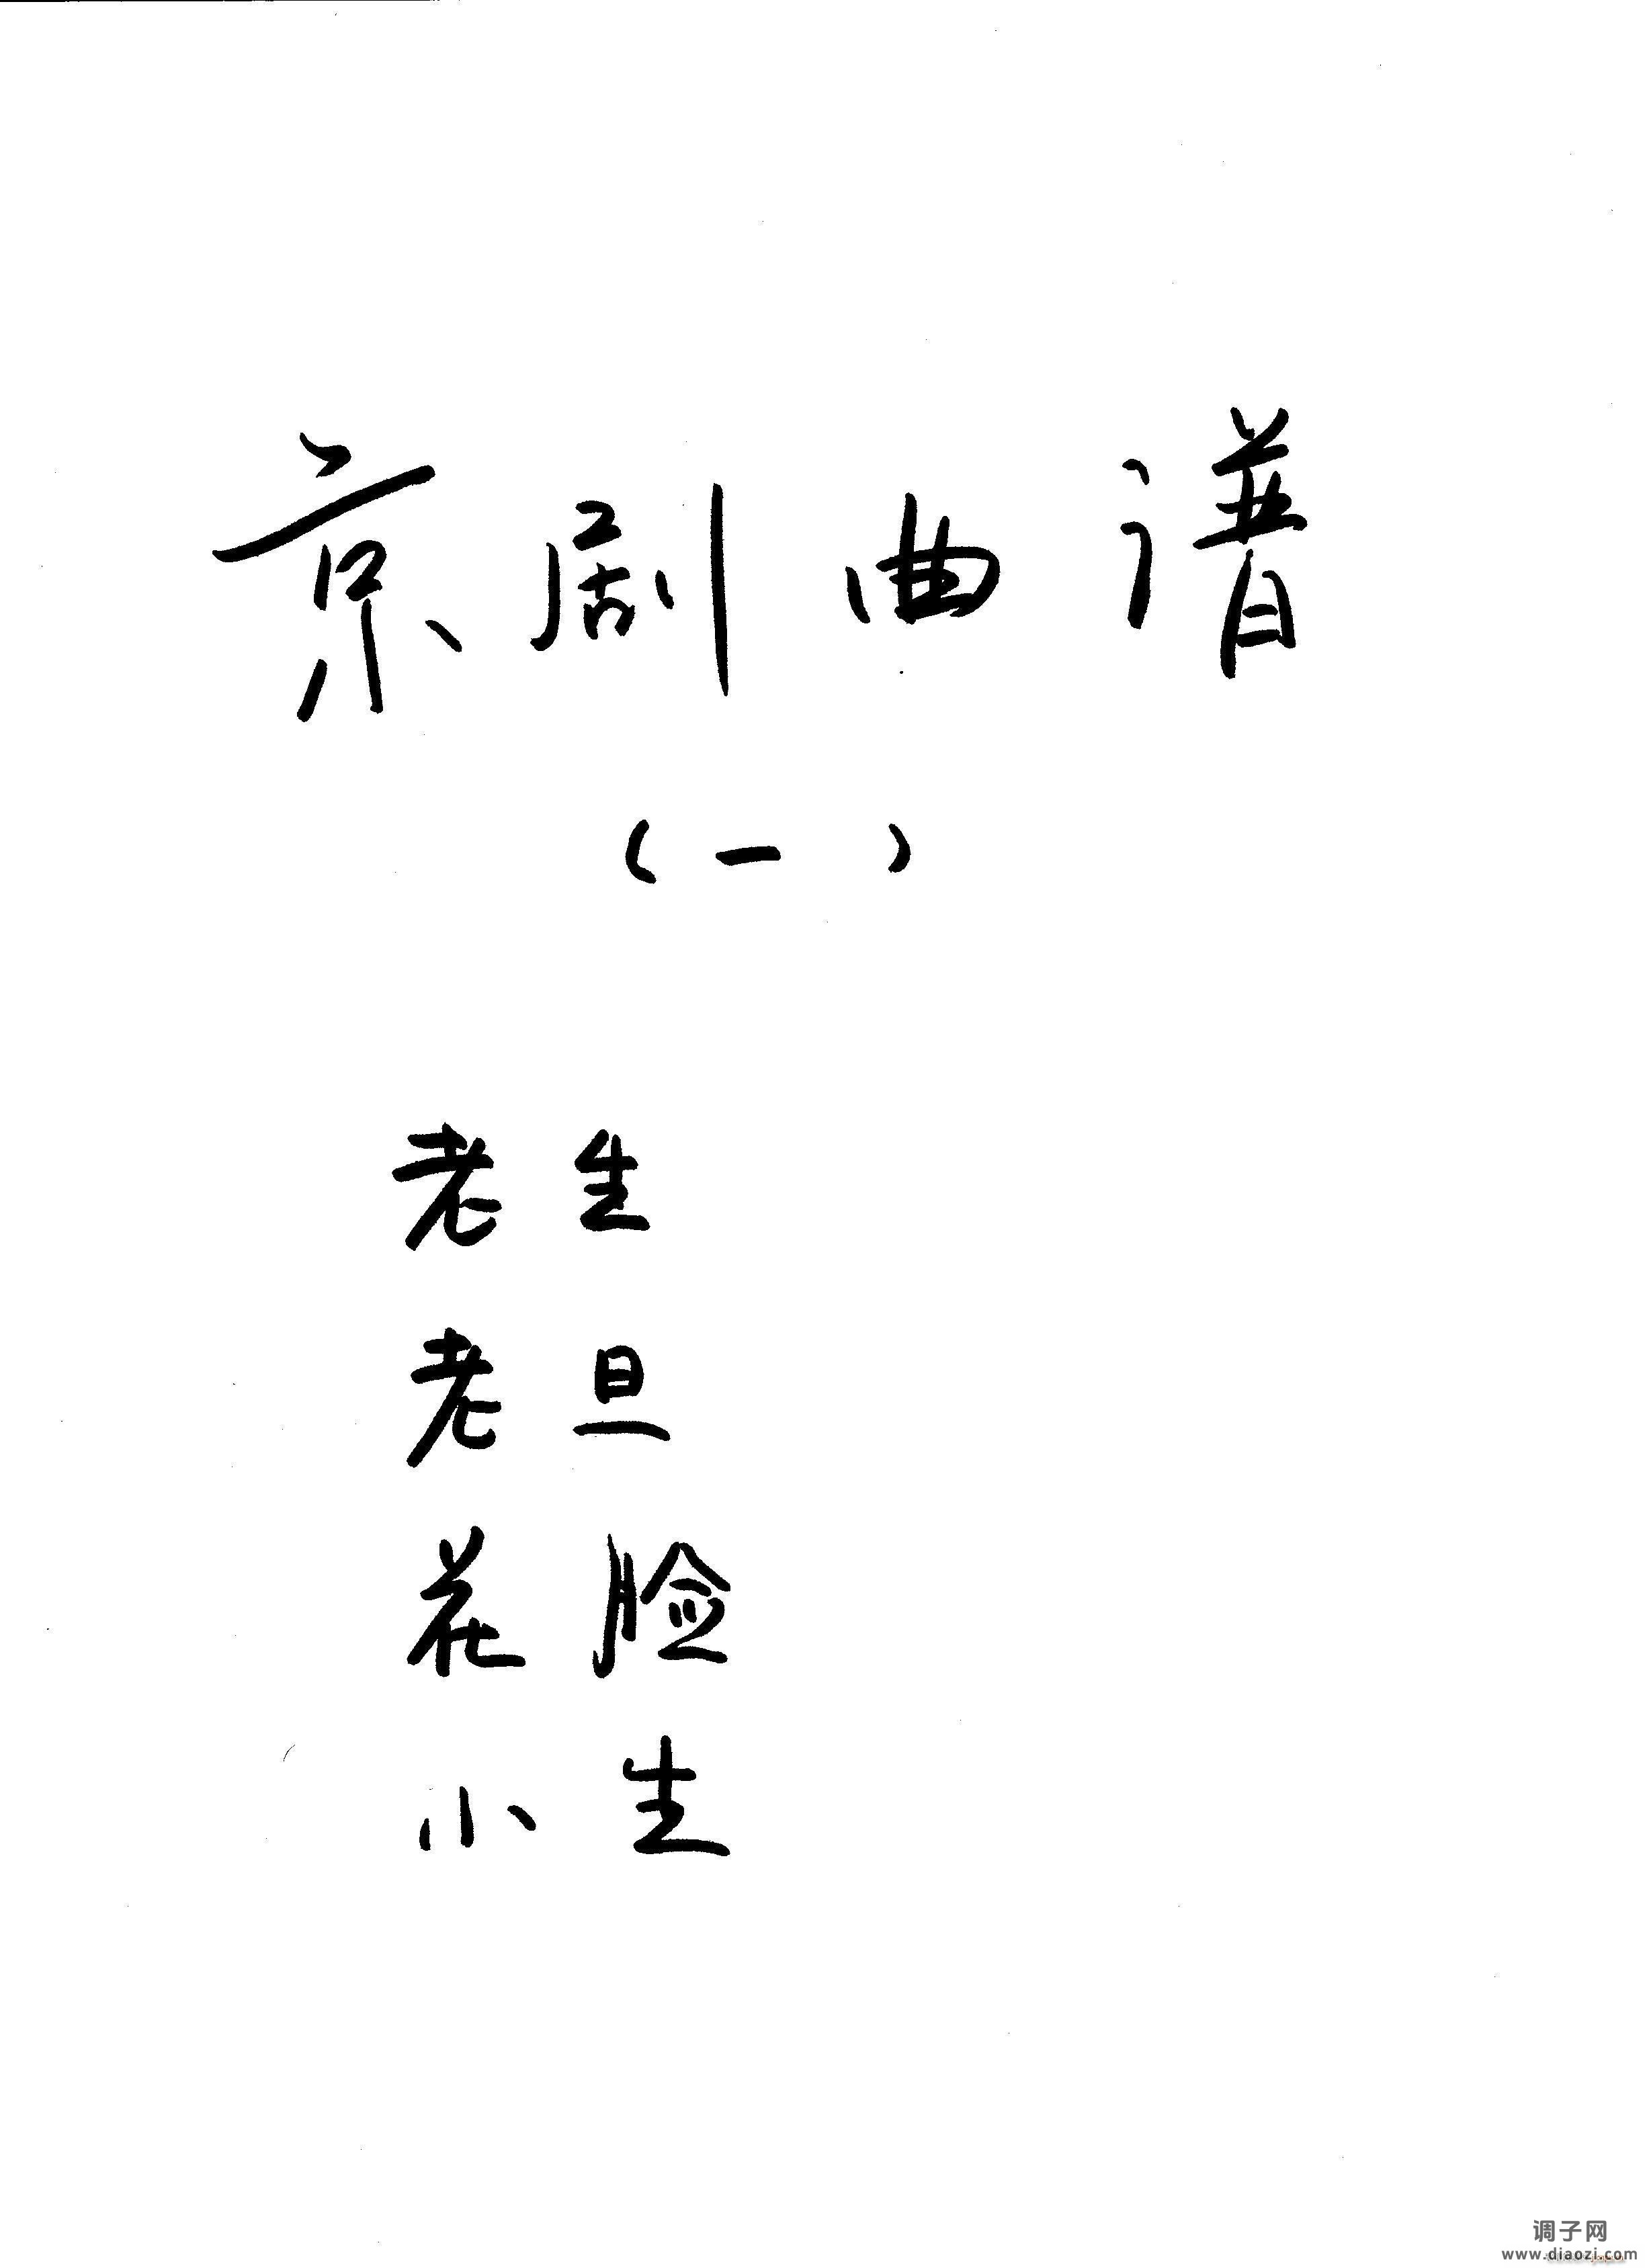 京剧曲谱
（一）
老生
老旦
花脸
小生
调子网
www.diaozi.com